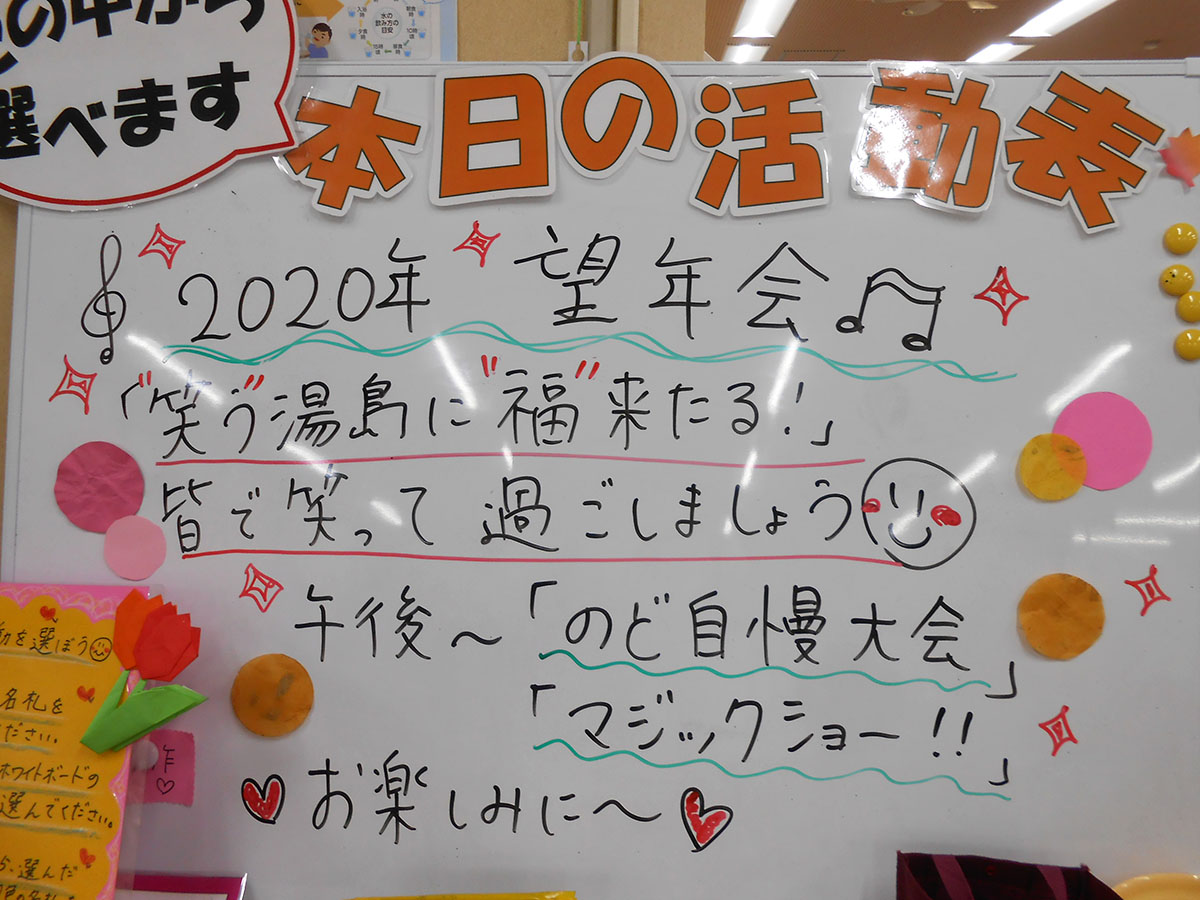 の中から
選べます
本日の活動表
2020年 望年会
「"笑う"湯島に"福"来たる!」
皆で笑って過ごしましょう
午後～「のど自慢大会」
「マジックショー!!」
お楽しみに～
動を選ぼう
名札を
ださい。
ホワイトボードの
選んでください。
ら、選んだ
氷の
飲み方の
目安